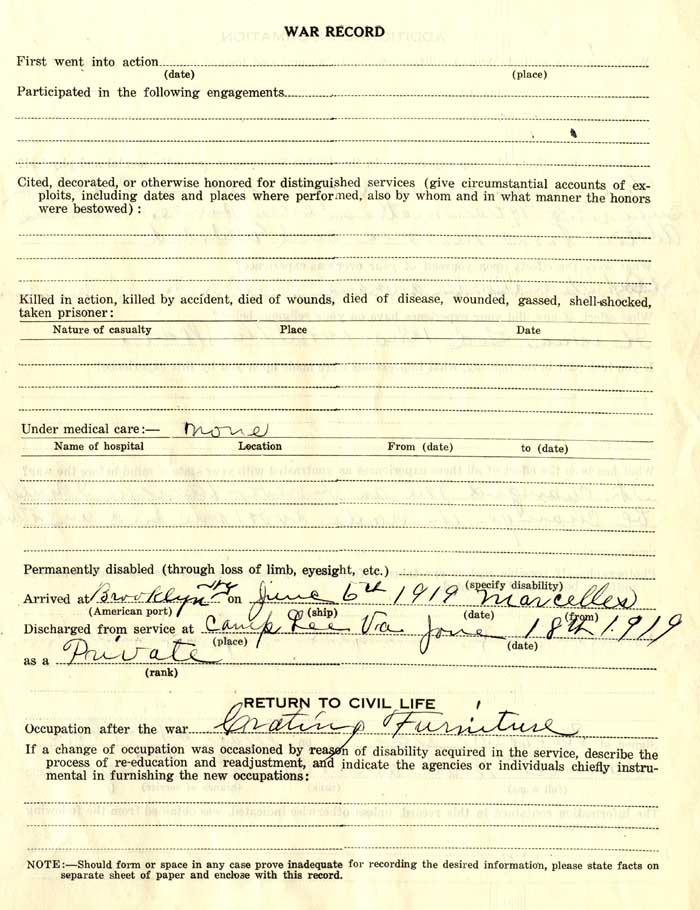 WAR RECORD
First went into action
(date) (place)
Participated in the following engagements
Cited, decorated, or otherwise honored for distinguished services (give circumstantial accounts of ex-
ploits, including dates and places where performed, also by whom and in what manner the honors
were bestowed) :
Killed in action, killed by accident, died of wounds, died of disease, wounded, gassed, shell-shocked,
taken prisoner:
Nature of casualty Place Date
Under medical care:— none
Name of hospital Location From (date) to (date)
Permanently disabled (through loss of limb, eyesight, etc.)
(specify disability)
Arrived at Brooklyn NY on June 6th 1919 Marcelles
(American port) (ship) (date) (from)
Discharged from service at Camp Lee Va June 18th 1919
(place) (date)
as a Private
(rank)
RETURN TO CIVIL LIFE
Occupation after the war Crating Furniture
If a change of occupation was occasioned by reason of disability acquired in the service, describe the
process of re-education and readjustment, and indicate the agencies or individuals chiefly instru-
mental in furnishing the new occupations:
NOTE:—Should form or space in any case prove inadequate for recording the desired information, please state facts on
separate sheet of paper and enclose with this record.